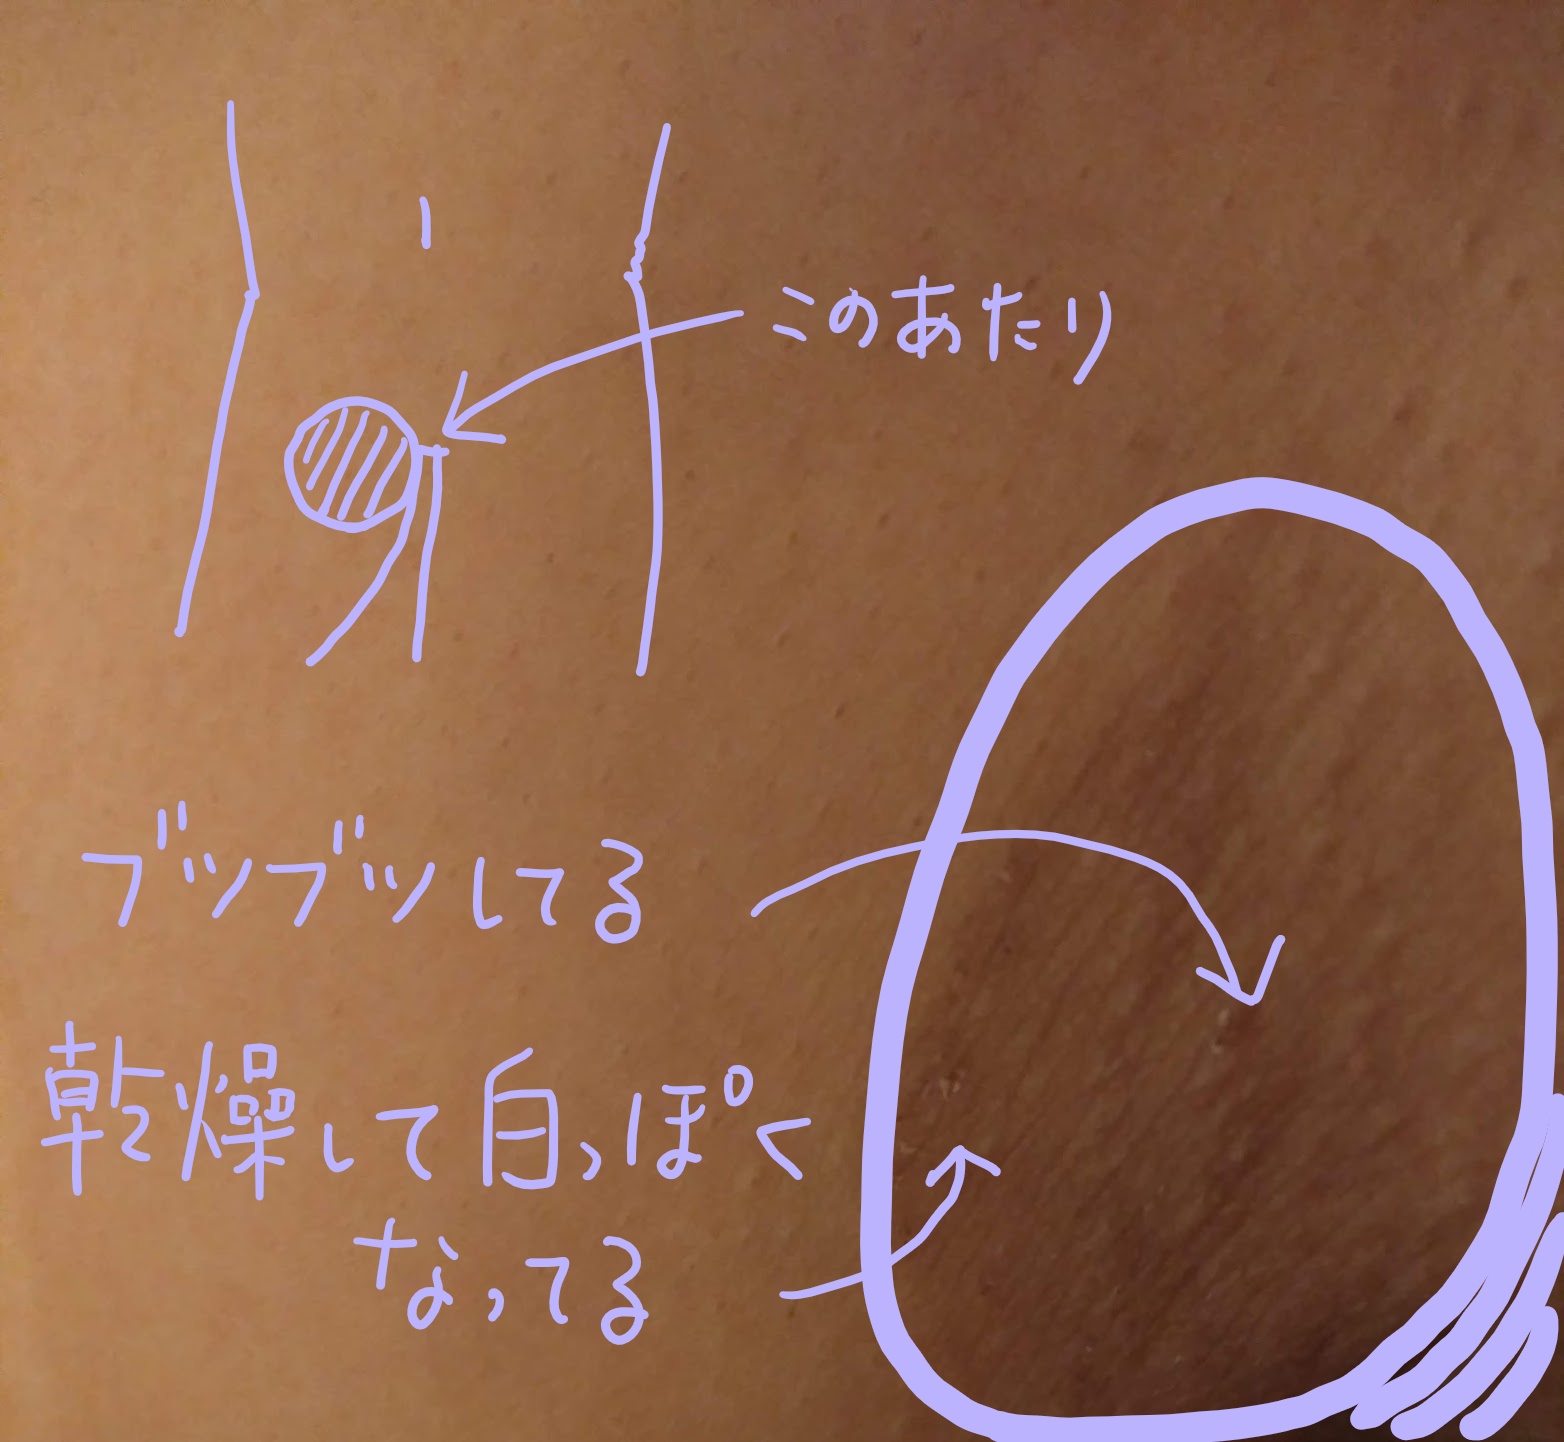 このあたり
ブツブツしてる
乾燥して白っぽく
なってる